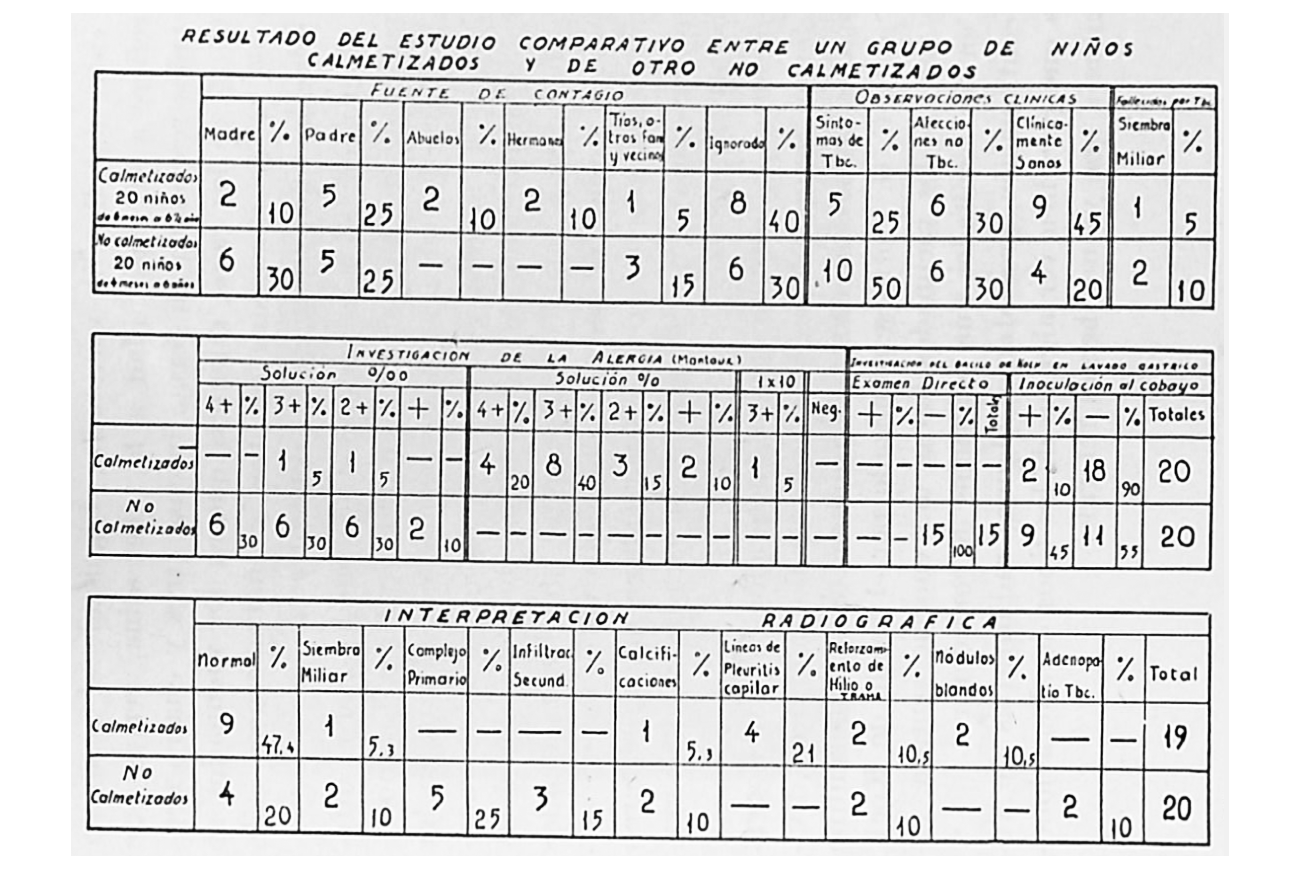 RESULTADO DEL ESTUDIO COMPARATIVO ENTRE UN GRUPO DE NIÑOS
CALMETIZADOS Y DE OTRO NO CALMETIZADOS
FUENTE DE CONTAGIO OBSERVACIONES CLINICAS Fallecidos por Tbc.
Madre % Padre % Abuelos % Hermanos % Tíos, o- tros fam y vecinos % ignorado % Sínto- mas de Tbc. % Afeccio- nes no Tbc. % Clínica- mente Sanos % Siembra Miliar %
Calmetizados
20 niños
de 6 meses a 6½ año
2 10 5 25 2 10 2 10 1 5 8 40 5 25 6 30 9 45 1 5
No calmetizados
20 niños
de 4 meses a 6 años
6 30 5 25 — — — — 3 15 6 30 10 50 6 30 4 20 2 10
INVESTIGACION DE LA ALERGIA (Mantoux) INVESTIGACION DEL BACILO DE KOCH EN LAVADO GASTRICO
Solución %oo Solución % 1x10 Examen Directo Inoculación al cobayo
4+ % 3+ % 2+ % + % 4+ % 3+ % 2+ % + % 3+ % Neg. + % — % Totales + % — % Totales
Calmetizados — — 1 5 1 5 — — 4 20 8 40 3 15 2 10 1 5 — — — — — — 2 10 18 90 20
No
Calmetizados 6 30 6 30 6 30 2 10 — — — — — — — — — — — — — 15 100 15 9 45 11 55 20
INTERPRETACION RADIOGRAFICA
Normal % Siembra Miliar % Complejo Primario % Infiltrac. Secund. % Calcifi- caciones % Lineas de Pleuritis capilar % Reforzami- ento de Hilio o TRAMA % Nódulos blandos % Adenopa tia Tbc. % Total
Calmetizados 9 47,4 1 5,3 — — — — 1 5,3 4 21 2 10,5 2 10,5 — — 19
No
Calmetizados 4 20 2 10 5 25 3 15 2 10 — — 2 10 — — 2 10 20